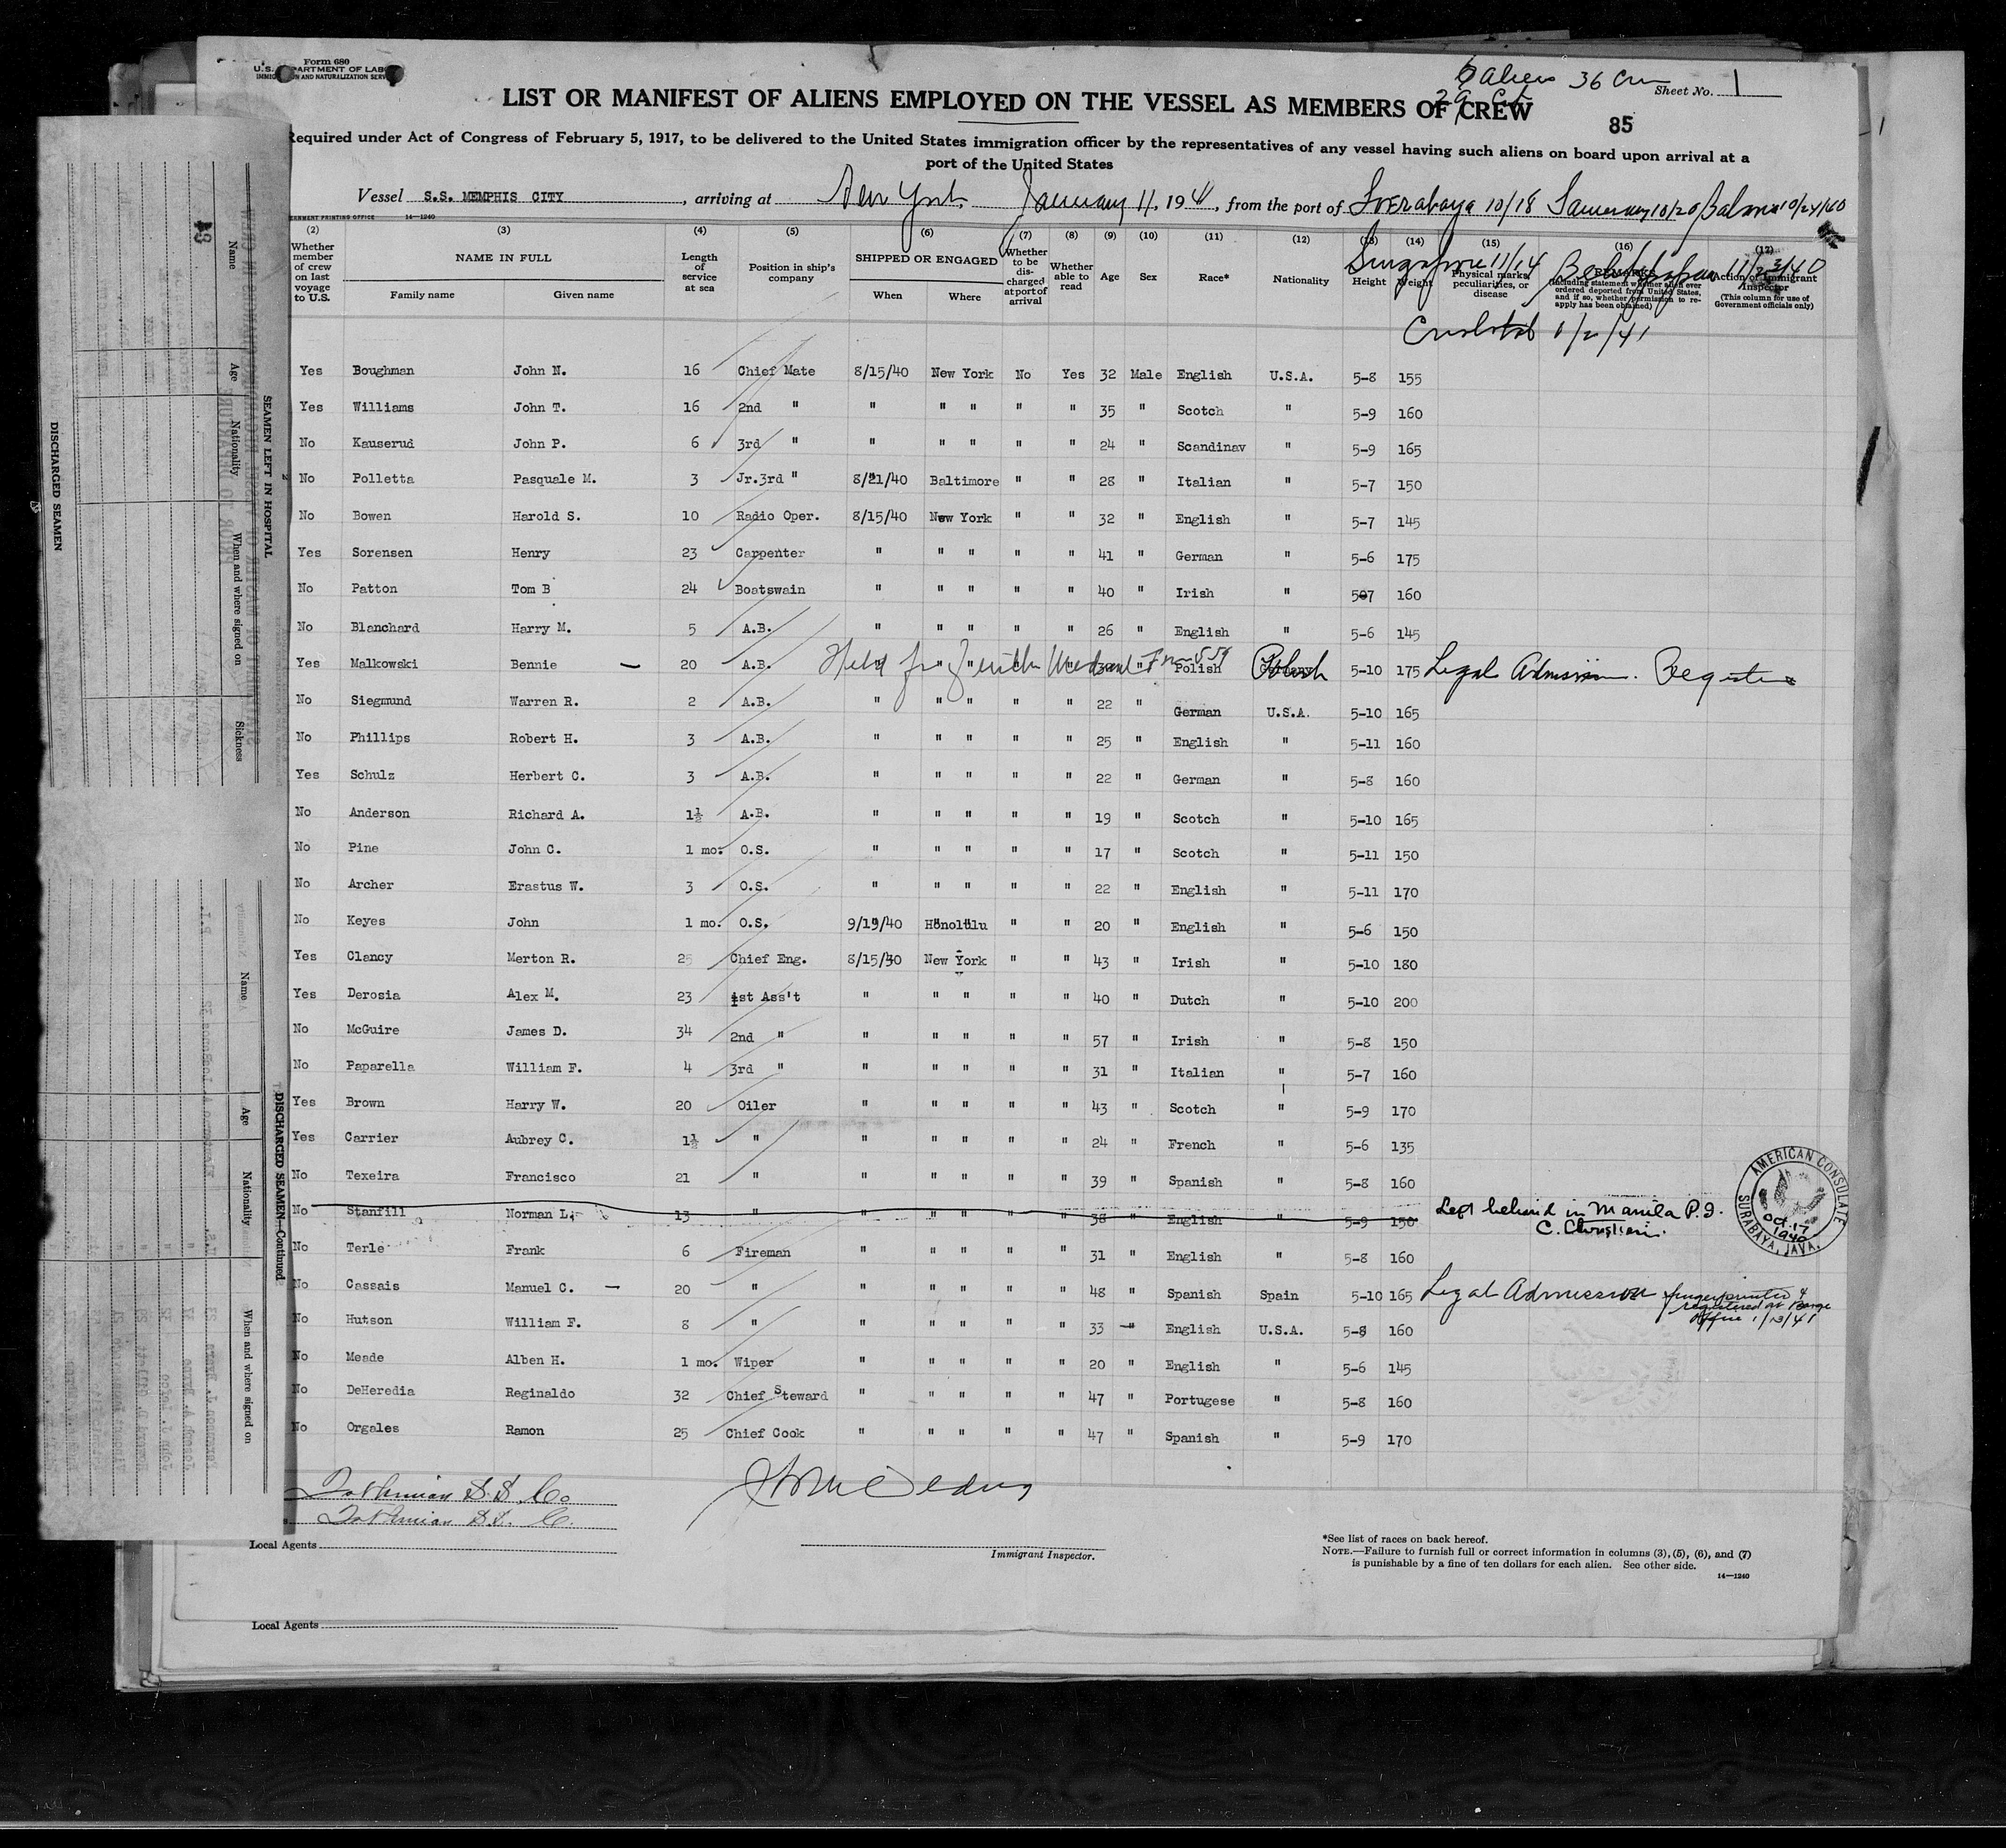 Form 680
U.S. DEPARTMENT OF LABOR
IMMIGRATION AND NATURALIZATION SERVICE
aliens 36 Cr
Sheet No. 1
LIST OR MANIFEST OF ALIENS EMPLOYED ON THE VESSEL AS MEMBERS OF CREW
85
Required under Act of Congress of February 5, 1917, to be delivered to the United States immigration officer by the representatives of any vessel having such aliens on board upon arrival at a
port of the United States
Vessel S.S. MEMPHIS CITY, arriving at New York, January 11, 1941, from the port of Soerabaya 10/18 10/20 10/24/40
14—1240
Singapore 11/14 11/23/40
Cristobal 1/2/41
(2) (3) (4) (5) (6) (7) (8) (9) (10) (11) (12) (13) (14) (15) (16) (17)
Whether member of crew on last voyage to U.S. NAME IN FULL Family name Given name Length of service at sea Position in ship's company SHIPPED OR ENGAGED When Where Whether to be discharged at port of arrival Whether able to read Age Sex Race* Nationality Height Weight Physical marks, peculiarities, or disease REMARKS (Including statement whether alien ever ordered deported from United States, and if so, whether permission to reapply has been obtained) Action of Immigrant Inspector (This column for use of Government officials only)
Yes Boughman John N. 16 Chief Mate 8/15/40 New York No Yes 32 Male English U.S.A. 5-8 155
Yes Williams John T. 16 2nd " " " " " " 35 " Scotch " 5-9 160
No Kauserud John P. 6 3rd " " " " " " 24 " Scandinav " 5-9 165
No Polletta Pasquale M. 3 Jr.3rd " 8/21/40 Baltimore " " 28 " Italian " 5-7 150
No Bowen Harold S. 10 Radio Oper. 8/15/40 New York " " 32 " English " 5-7 145
Yes Sorensen Henry 23 Carpenter " " " " " 41 " German " 5-6 175
No Patton Tom B 24 Boatswain " " " " " 40 " Irish " 507 160
No Blanchard Harry M. 5 A.B. " " " " " 26 " English " 5-6 145
Yes Malkowski Bennie — 20 A.B. Held Polish Polish 5-10 175 Legal Admission.
No Siegmund Warren R. 2 A.B. " " " " " 22 " German U.S.A. 5-10 165
No Phillips Robert H. 3 A.B. " " " " " 25 " English " 5-11 160
Yes Schulz Herbert C. 3 A.B. " " " " " 22 " German " 5-8 160
No Anderson Richard A. 1½ A.B. " " " " " 19 " Scotch " 5-10 165
No Pine John C. 1 mo. O.S. " " " " " 17 " Scotch " 5-11 150
No Archer Erastus W. 3 O.S. " " " " " 22 " English " 5-11 170
No Keyes John 1 mo. O.S. 9/19/40 Honolulu " " 20 " English " 5-6 150
Yes Clancy Merton R. 25 Chief Eng. 8/15/30 New York " " 43 " Irish " 5-10 180
Yes Derosia Alex M. 23 1st Ass't " " " " " 40 " Dutch " 5-10 200
No McGuire James D. 34 2nd " " " " " " 57 " Irish " 5-8 150
No Paparella William F. 4 3rd " " " " " " 31 " Italian " 5-7 160
Yes Brown Harry W. 20 Oiler " " " " " 43 " Scotch " 5-9 170
Yes Carrier Aubrey C. 1½ " " " " " " 24 " French " 5-6 135
No Texeira Francisco 21 " " " " " " 39 " Spanish " 5-8 160
No Stanfill Norman L. 13 " " " " " " 38 " English " 5-9 150 Left behind in Manila P.I.
C. Christieni.
AMERICAN CONSULATE
OCT. 17 1940
SURABAYA, JAVA.
No Terle Frank 6 Fireman " " " " " 31 " English " 5-8 160
No Cassais Manuel C. — 20 " " " " " " 48 " Spanish Spain 5-10 165 Legal Admission fingerprinted & registered at Barge Office 1/13/41
No Hutson William F. 8 " " " " " " 33 " English U.S.A. 5-8 160
No Meade Alben H. 1 mo. Wiper " " " " " 20 " English " 5-6 145
No DeHeredia Reginaldo 32 Chief Steward " " " " " 47 " Portugese " 5-8 160
No Orgales Ramon 25 Chief Cook " " " " " 47 " Spanish " 5-9 170
Isthmian S.S. Co.
Isthmian S.S. Co.
Local Agents
Immigrant Inspector.
*See list of races on back hereof.
NOTE.—Failure to furnish full or correct information in columns (3), (5), (6), and (7)
is punishable by a fine of ten dollars for each alien. See other side.
14—1240
Local Agents
DISCHARGED SEAMEN
SEAMEN LEFT IN HOSPITAL
Name Age Nationality When and where signed on Sickness
DISCHARGED SEAMEN—Continued
Name Age Nationality When and where signed on